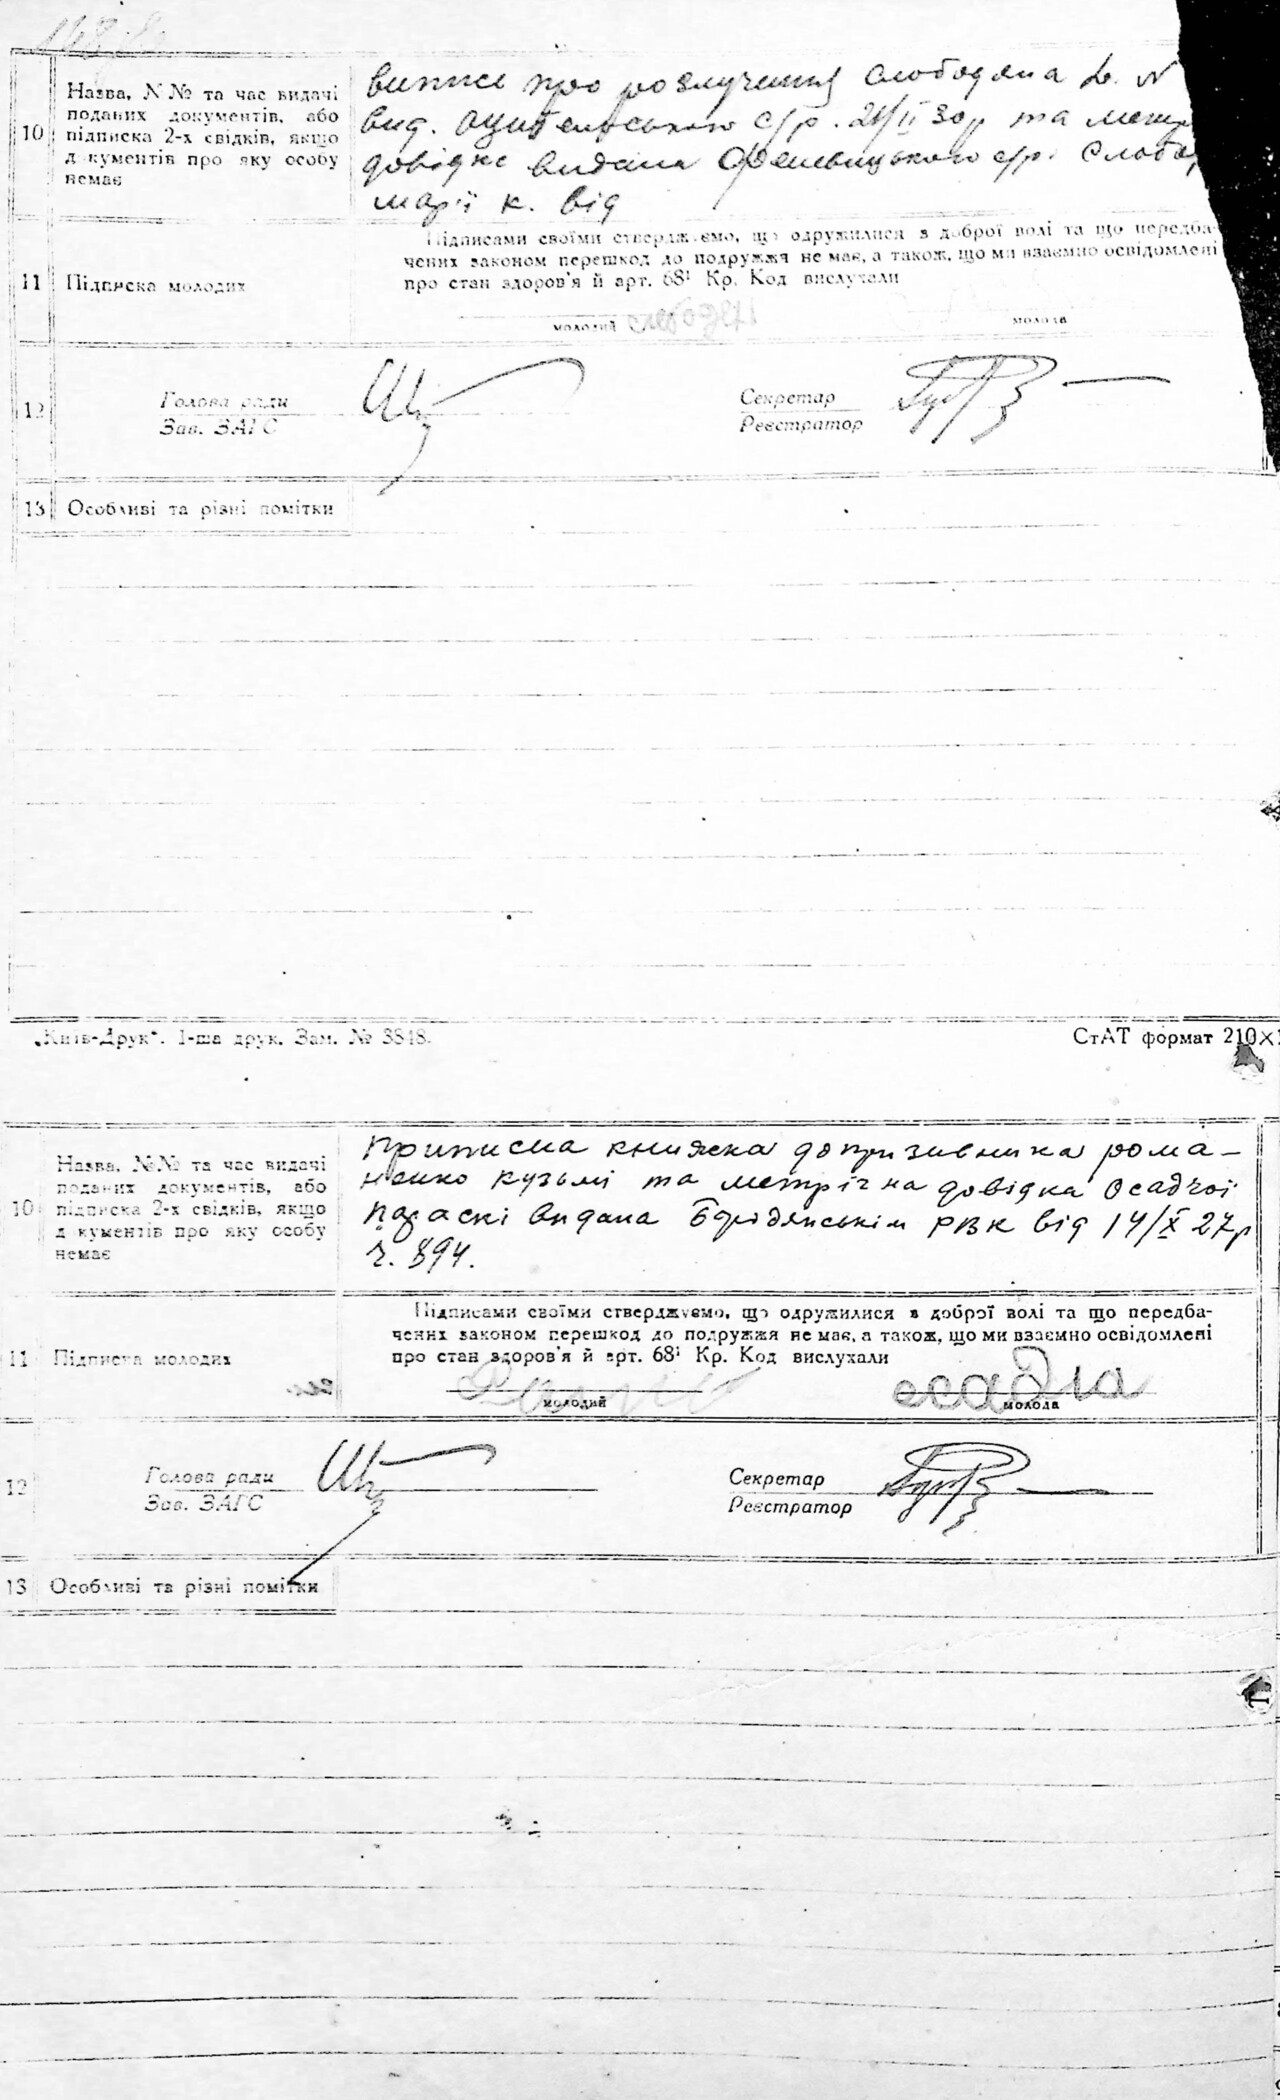 10
Назва, N №  та час видачі
поданих документів, або
підписка 2-х свідків, якщо
д кументів про яку особу
немає
виписі про розлучення Слободяна
вид. с/р. 21/II 30 р та
довідке видана с/р.
марії к. від
11 Підписка молодих
Підписами своїми стверджуємо, що одружилися з доброї волі та що передба-
чених законом перешкод до подружжя не має, а також, що ми взаємно освідомлені
про стан здоров'я й арт. 68¹ Кр. Код вислухали
молодий молода
12
Голова ради
Зав. ЗАГС
Секретар
Реєстратор
13 Особливі та різні помітки
„Київ-Друк". 1-ша друк. Зам. № 3848.
СтАТ формат 210×
10
Назва, №№ та час видачі
поданих документів, або
підписка 2-х свідків, якщо
д кументів про яку особу
немає
приписна книжка допризивника рома-
ненко кузьмі та метрічна довідка Осадчої
Параскі видана Бродянськім РВК від 14/X 27р
ч. 894.
11 Підписка молодих
Підписами своїми стверджуємо, що одружилися в доброї волі та що передба-
чених законом перешкод до подружжя не має, а також, що ми взаємно освідомлені
про стан здоров'я й арт. 68¹ Кр. Код вислухали
осадча
молодий молода
12
Голова ради
Зав. ЗАГС
Секретар
Реєстратор
13 Особливі та різні помітки